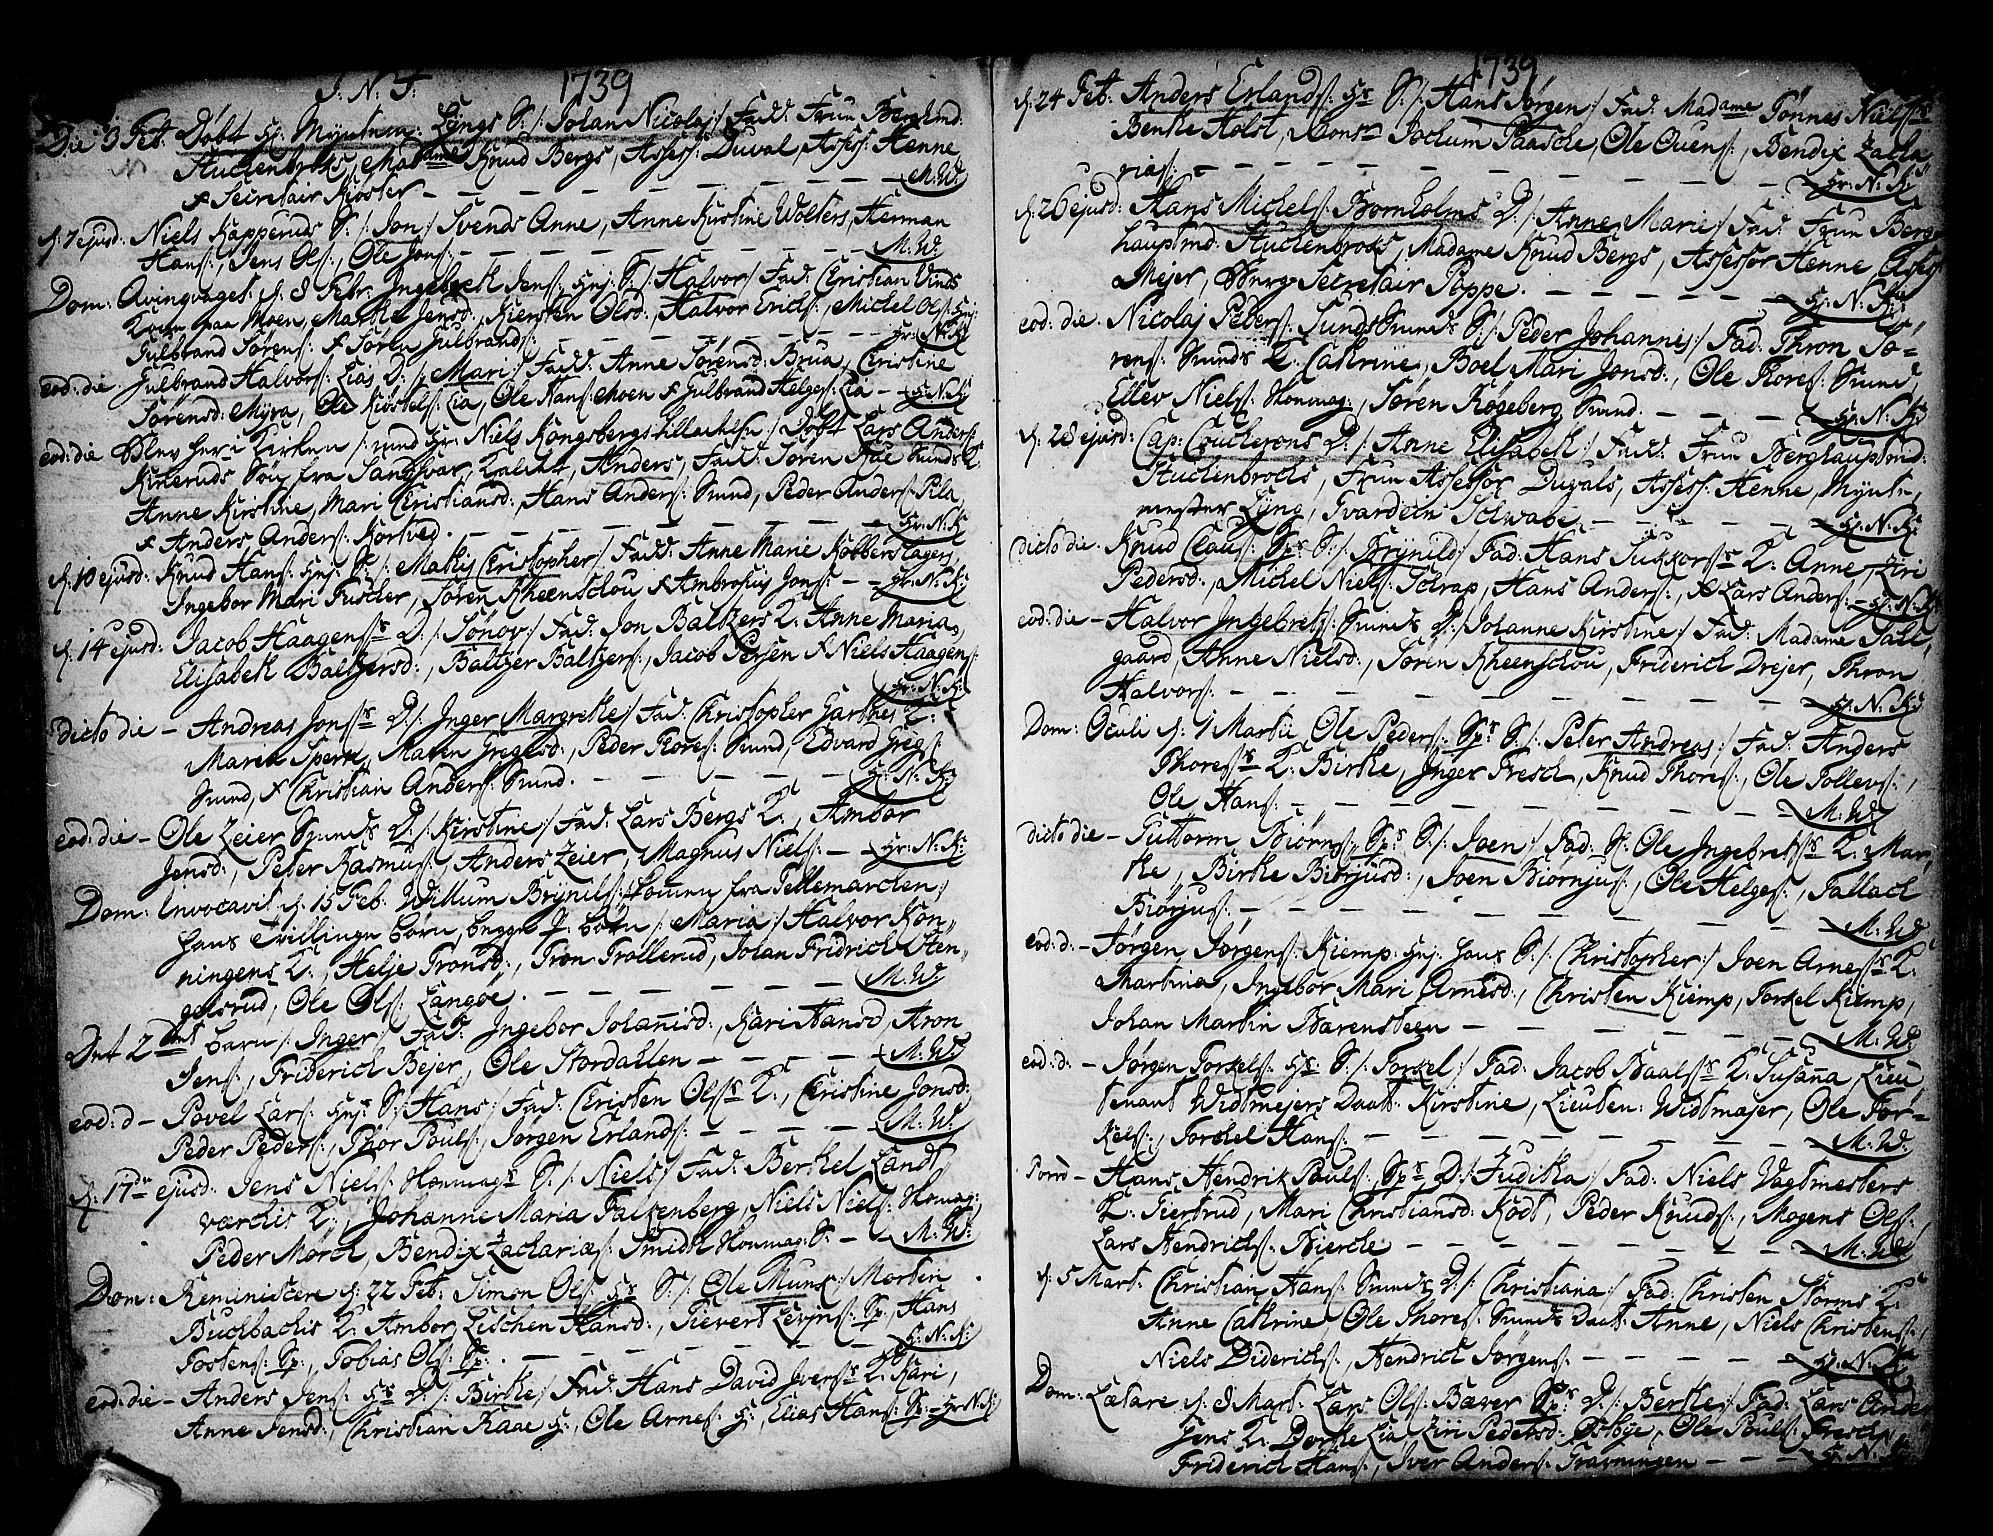 J: N: J: 1739
Die 3 Feb: Døbt Hr: Myntm: Lÿngs S: /: Johan Nicolaj :/ Fadd: Fruu Berghmd:
Stuckenbrocks, Madame Knud Bergs, Assess: Duval, Assess: Henne
& Secretair Kioster — — — M: W:
d: 7 ejusd: Niels Kapperuds S: /: Jon :/ Svends Anne, Anne Kirstine Wolters, Herman
Hans:, Jens Ols:, Ole Jons: — — — M: W:
Dom: qvingvages: d: 8 Febr: Ingebreth Jens: S: /: Halvor :/ Fad: Christian
paa Moen, Marthe Jensd:, Kiersten Olsd:, Halvor Erichs:, Michel Ols:
Gulbrand Sørens: & Søren Gulbrands: — — — Hr: N: K:
eod: die. Gulbrand Halvors: Lias D: /: Mari :/ Fadd: Anne Sørensd: Brua, Christine
Sørensd: Myra, Ole Kiøstels: Lia, Ole Hans: Moen & Gulbrand Helges: Lia — Hr: N: K:
eod: die Blev her i Kirken /: med Hr: Niels Kongsbergs tilladelse :/ Døbt Lars Anders:
Kinneruds Søn fra Sandsvær, kaldet, Anders, Fadd: Søren Smeds K:
Anne Kirstine, Mari Christiansd:, Hans Anders: Smed, Peder Anders: Pila,
& Anders Anders: Kortved. — — — Hr: N: K:
d: 10 ejusd: Knud Hans: S: /: Mathis Christopher :/ Fadd: Anne Marie Kobberslagers
Ingebor Mari Fischer, Søren Rheenschou & Ambrosius Jons: — Hr: N: K:
d: 14 ejusd: Jacob Haagens:s D: /: Sønov :/ Fad: Jon Baltzers K: Anne Maria,
Elisabeth Baltzersd:, Baltzer Baltzers:, Jacob Persen & Niels Haagens:
Hr: N: K:
dicto die — Andreas Jons:s D: /: Inger Margrethe :/ Fad: Christopher Garthes K:
Maren Spern, Maren Gregesd:, Peder Thores: Smed, Edvard Gregs:
Smed, & Christian Anders: Smed. — — — Hr: N: K:
eod: die — Ole Zeier Smeds D: /: Kirstine :/ Fad: Lars Bergs K:, Ambor
Jensd:, Peter Rasmus:, Anders Zeier, Magnus Niels: — Hr: N: K:
Dom: Invocavit d: 15 Feb: Willum Brÿnils: fra Tellemarchen,
hans Tvillinge børn, begge børn /: Maria :/ Halvor Kon,,
ningens K:, Helje Tronsd:, Tron Trollerud, Johan Fridrich Sten,,
gelsrud, Ole Ols: Langøe. — — — M: W:
Det 2det barn /: Inger :/ Fad: Ingebor Johannisd:, Kari Hansd, Aron
Jens:, Friderich Bejer, Ole Stordahlen — — — M: W:
eod: d — Povel Lars: S: /: Hans :/ Fad: Christen Ols:s K:, Christine Jonsd:
Peder Peders:, Thor Pouls:, Jørgen Erlands: — — — M: W:
d: 17de ejusd: Jens Niels: Honmags S: /: Niels :/ Fad: Berthel Landt,,
værchis K:, Johanne Maria Falkenberg, Niels Niels: Honmag:,
Peder Mørch, Bendix Zachariæs: Smidth Honmag: S: — M: W:
Dom: Reminiscere d: 22 Feb: Simon Ols: Hs S: /: Ole Munk :/ Morten
Buchbachis K: Ambor, Lischen Hansd:, Sievert Levins: Sp:, Hans
Tostens: Sp:, Tobias Ols: Sp: — — — Hr: N: K:
eod: die — Anders Jens: Hs D: /: Birthe :/ Fad: Hans David Ivers:s K: Kari,
Anne Jensd:, Christian Raae H:, Ole Arnes: H:, Elias Hans: Sp: — Hr: N: K:
1739
d: 24 Feb: Anders Erlands: Hs S: /: Hans Jørgen :/ Fad: Madame Tønnes Niels:s
Benthe Holst, Monsr Jochum Paasche, Ole Ovens:, Bendix Zacha,,
rias: — — — Hr: N: K:
d: 26 ejusd: Hans Michels: Bornholms D: /: Anne Marie :/ Fad: Fruu Berg,,
hauptmd: Stuckenbrocks, Madame Knud Bergs, Assessor Henne, Assess:
Mejer, Berg Secretair Poppe. — — — Hr: N: K:
eod: die. Nicolaj Peders: Lunds Smeds S: /: Peder Johannes :/ Fad: Thron Sø=
rens: Smeds K: Cathrine, Boel Mari Jonsd:, Ole Thores: Smed,
Ellev Niels: Honmag:, Søren Røgeberg Smed. — — — Hr: N: K:
d: 28 ejusd: Cap: Coucherons D: /: Anne Elisabeth :/ Fad: Fruu Berghauptmd:
Stuckenbrocks, Fruu Assessor Duvals, Assess: Henne, Mynt,,
mester Lÿng, Gvardein Schwabe — — — Hr: N: K:
dicto die. Knud Claus: Sps S: /: Brÿnild :/ Fad: Hans Sukkors:s K: Anne, Ziri
Pedersd:, Michel Niels: Schrap, Hans Anders:, & Lars Anders: — Hr: N: K:
eod: die — Halvor Ingebrets: Smeds D: /: Johanne Kirstine :/ Fad: Madame Dahl,,
gaard, Anne Nielsd:, Søren Rheenschou, Friderich Drejer, Thron
Halvors: — — — Hr: N: K:
Dom: Oculi d: 1 Martii Ole Peders: Sps S: /: Peter Andreas :/ Fad: Anders
Thores:s K: Birthe, Inger Fresch, Knud Thores:, Ole Tollevs:,
Ole Hans: — — — M: W:
dicto die — Guttorm Biørns: Sps S: /: Joen :/ Fad: Ole Ingebrets:s K: Mar,,
the, Birthe Biørjusd:, Joen Biørnjus:, Ole Helges:, Tallach
Biørjus: — — — M: W:
eod: d: — Jørgen Jørgens: Kiemp: hans S: /: Christopher :/ Joen Arnes:s K:
Martina, Ingebor Mari Arnesd:, Christen Kiemp, Torkel Kiemp,
Johan Martin Barensteen — — — M: W:
eod: d: — Jørgen Torkels: Hs: S: /: Torkel :/ Fad: Jacob Baals:s K: Susana, Lieu
tenant Widtmejers Daat: Kirstine, Lieuten: Widtmajer, Ole Tor=
kels:, Torchel Hans: — — — M: W:
Torrd — Hans Hendrik Pouls: Sps D: /: Juditha :/ Fad: Niels Vagtmesters
K: Giertrud, Mari Christiansd: Kødt, Peder Knuds:, Mogens Ols:,
Lars Hendrichs: Biercke — — — M: W:
d: 5 Mart: Christian Hans: Smeds D: /: Christiana :/ Fad: Christen Storms K:
Anne Cathrine, Ole Thores: Smeds Daat: Anne, Niels Christens:,
Niels Diderichs:, Hendrich Jørgens: — — — Hr: N: K:
Dom: Lætare d: 8 Mart: Lars Ols: Bæver Sps D: /: Berthe :/ Fad: Lars Ander
sens K: Dorthe Lia, Ziri Pedersd: Østbÿe, Ole Pouls: Fresch,
Friderich Hans:, Iver Anders: Gravningen — — — Hr: N: K: